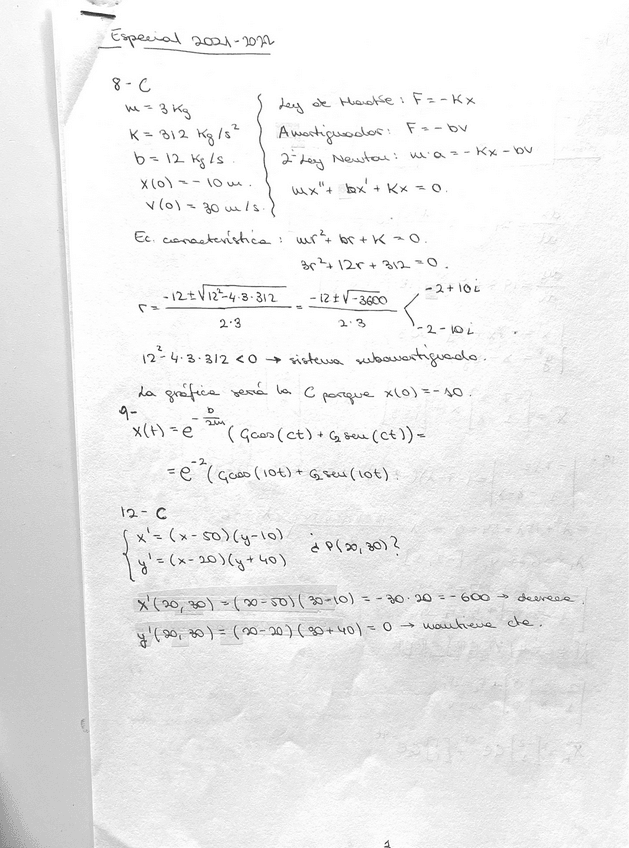 Especial 2021-2022
8-C
m = 3 Kg
K = 312 Kg/s²
b = 12 Kg/s.
x(0) = - 10 m.
v(0) = 30 m/s.
Ley de Hooke: F = -Kx
Amortiguador: F = -bv
2ª Ley Newton: m·a = -Kx - bv
mx'' + bx' + Kx = 0.
Ec. característica: mr² + br + K = 0.
3r² + 12r + 312 = 0.
r = (-12 ± √(12² - 4·3·312))/(2·3) = (-12 ± √(-3600))/(2·3) < -2 + 10i
-2 - 10i
12² - 4·3·312 < 0 → sistema subamortiguado.
La gráfica será la C porque x(0) = -10.
9-
x(t) = e^(-b/2m) (C₁cos(ct) + C₂sen(ct)) =
= e^(-2) (C₁cos(10t) + C₂sen(10t).
12-C
{ x' = (x-50)(y-10)
y' = (x-20)(y+40)
¿ P(20,30)?
x'(20,30) = (20-50)(30-10) = -30·20 = -600 → decrece.
y'(20,30) = (20-20)(30+40) = 0 → mantiene cte.
1